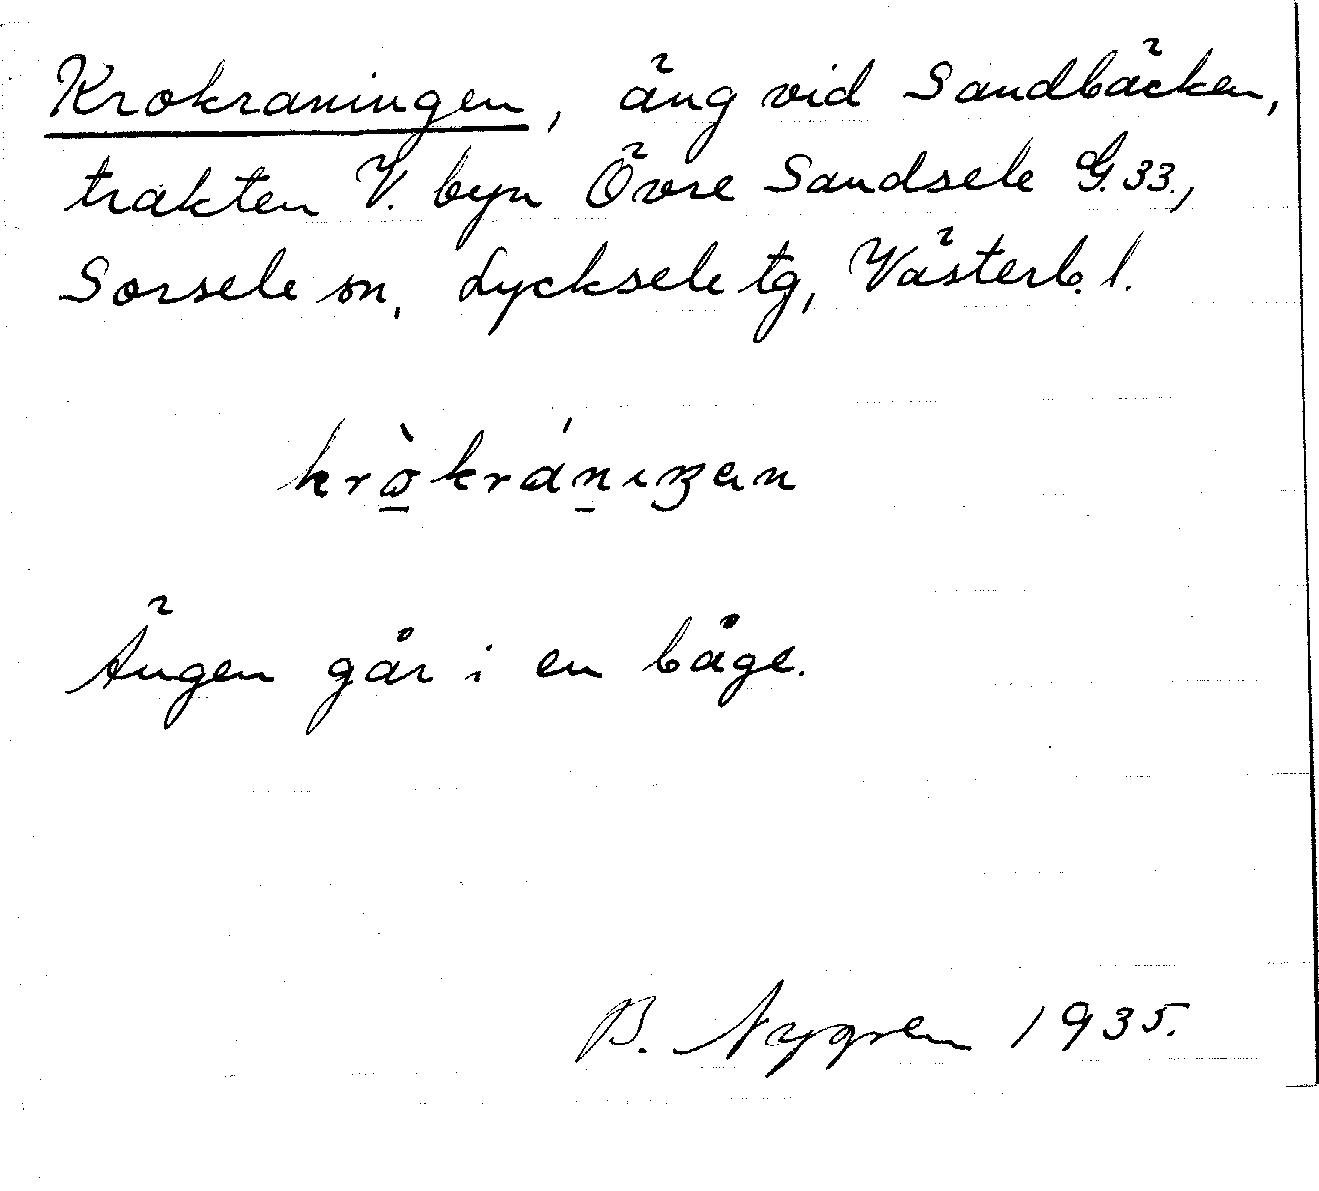 Krokraningen, äng vid Sandbäcken,
trakten V. byn Övre Sandsele G. 33.,
Sorsele sn, Lycksele tg, Västerb. l.
krò̱kráṉıŋen
Ängen går i en båge.
B. Nygren 1935.